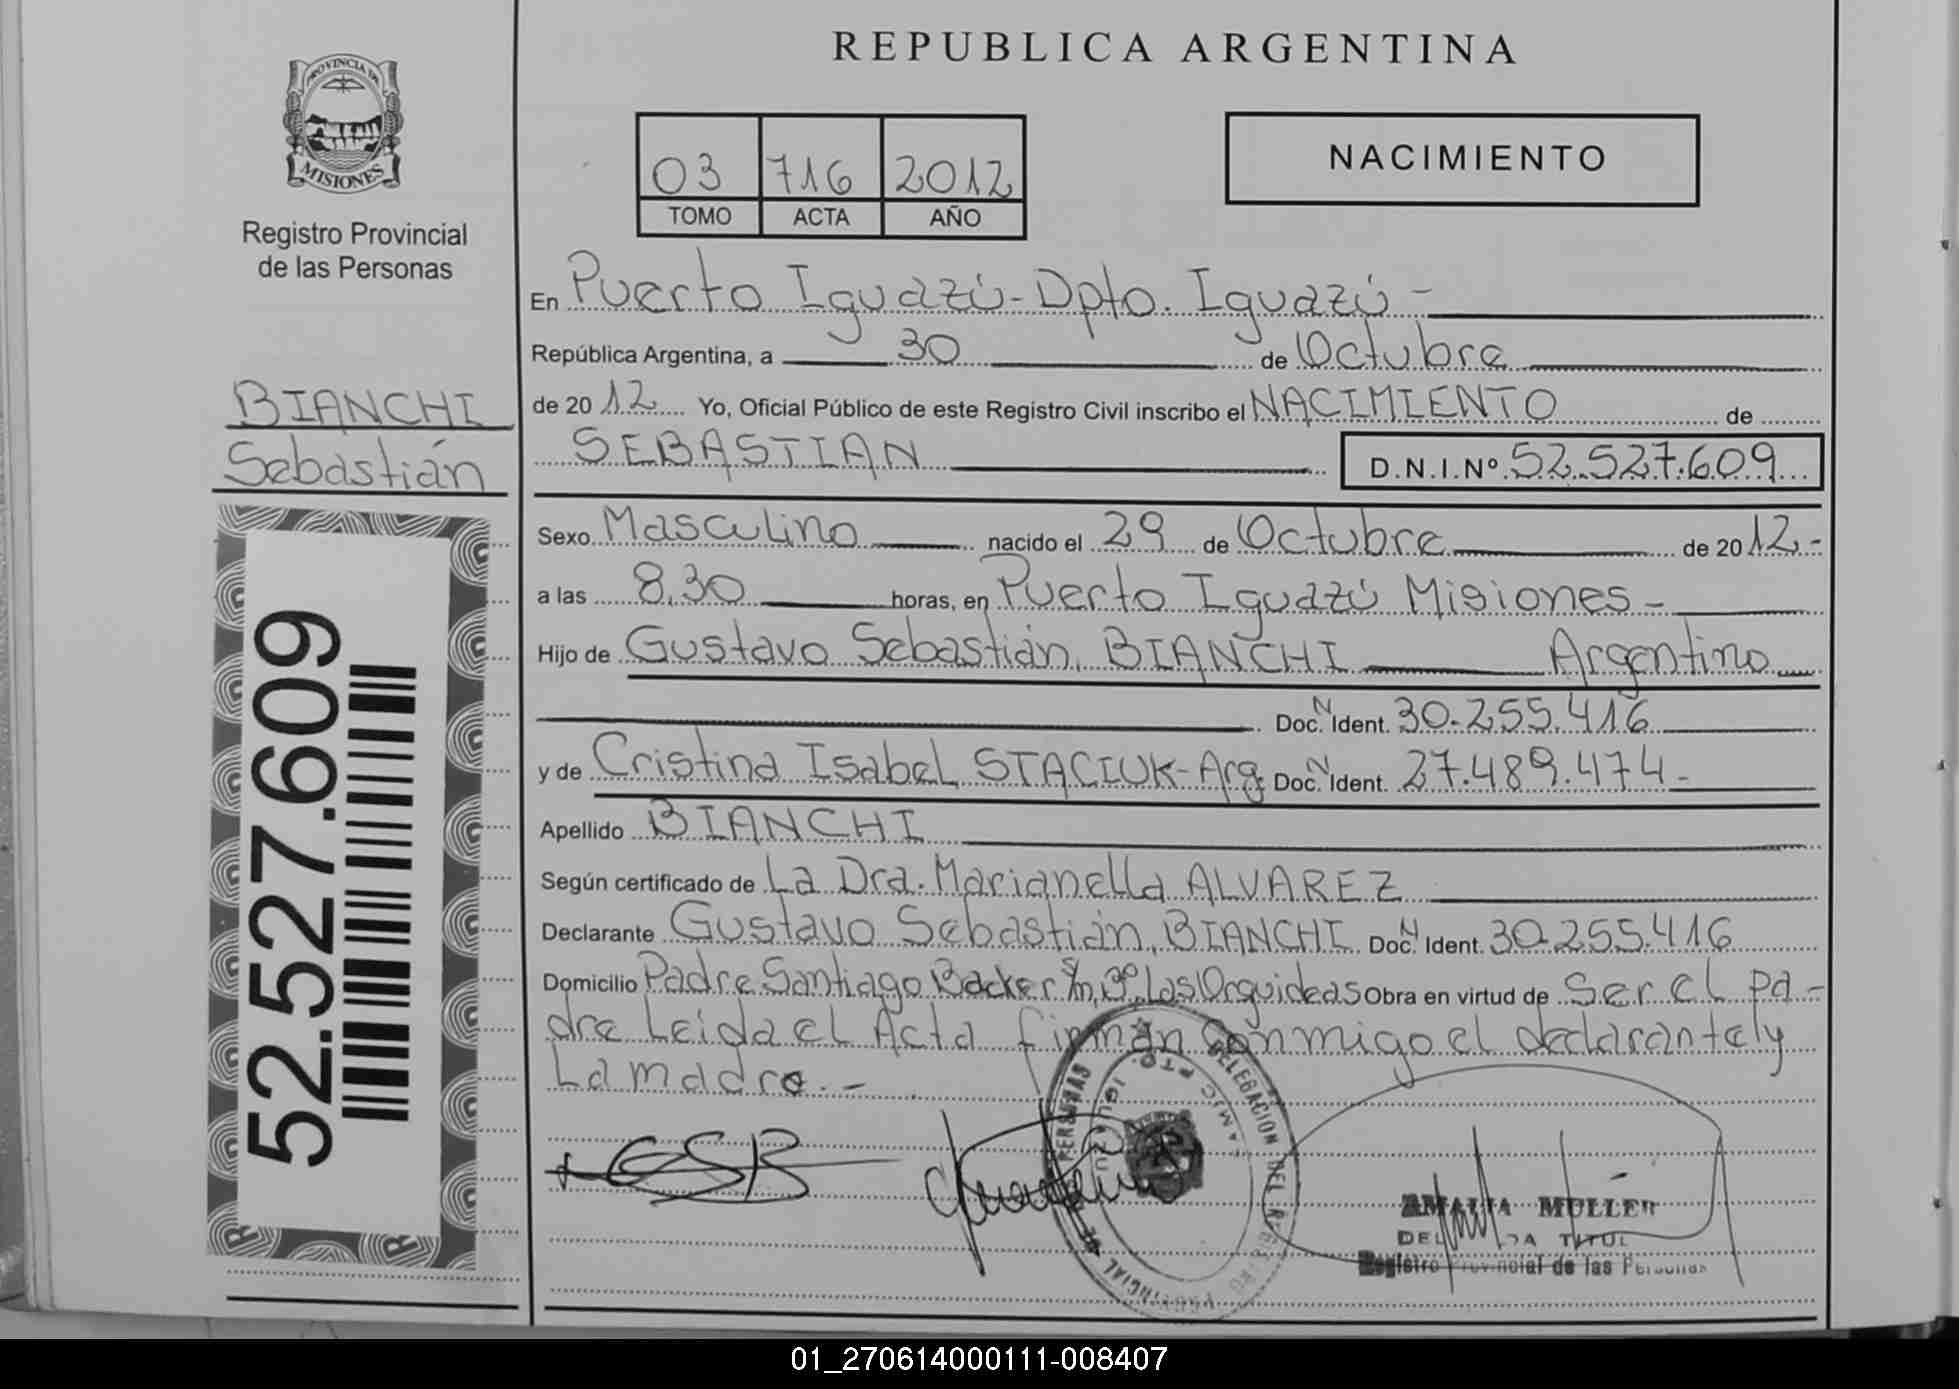 REPUBLICA ARGENTINA
PROVINCIA DE
MISIONES
Registro Provincial
de las Personas
03 716 2012
TOMO ACTA AÑO
NACIMIENTO
En Puerto Iguazú - Dpto. Iguazú -
República Argentina, a 30 de Octubre
de 2012 Yo, Oficial Público de este Registro Civil inscribo el NACIMIENTO de
SEBASTIAN D.N.I.Nº 52.527.609
BIANCHI
Sebastián
52.527.609
Sexo Masculino nacido el 29 de Octubre de 2012.-
a las 8,30 horas, en Puerto Iguazú Misiones -
Hijo de Gustavo Sebastián, BIANCHI Argentino
Doc. N Ident. 30.255.416
y de Cristina Isabel STACIUK - Arg. Doc. N Ident. 27.489.474 -
Apellido BIANCHI
Según certificado de La Dra. Marianella ALVAREZ
Declarante Gustavo Sebastián, BIANCHI Doc. N Ident. 30.255.416
Domicilio Padre Santiago Backer s/n, Bº Las Orquideas Obra en virtud de Ser el pa-
dre Leida el Acta firman conmigo el declarante y
La madre. -
GSB
DELEGACION DEL REGISTRO PROVINCIAL DE PERSONAS
PTO IGUAZU
AMALIA MULLER
Registro Provincial de las Personas
01_270614000111-008407